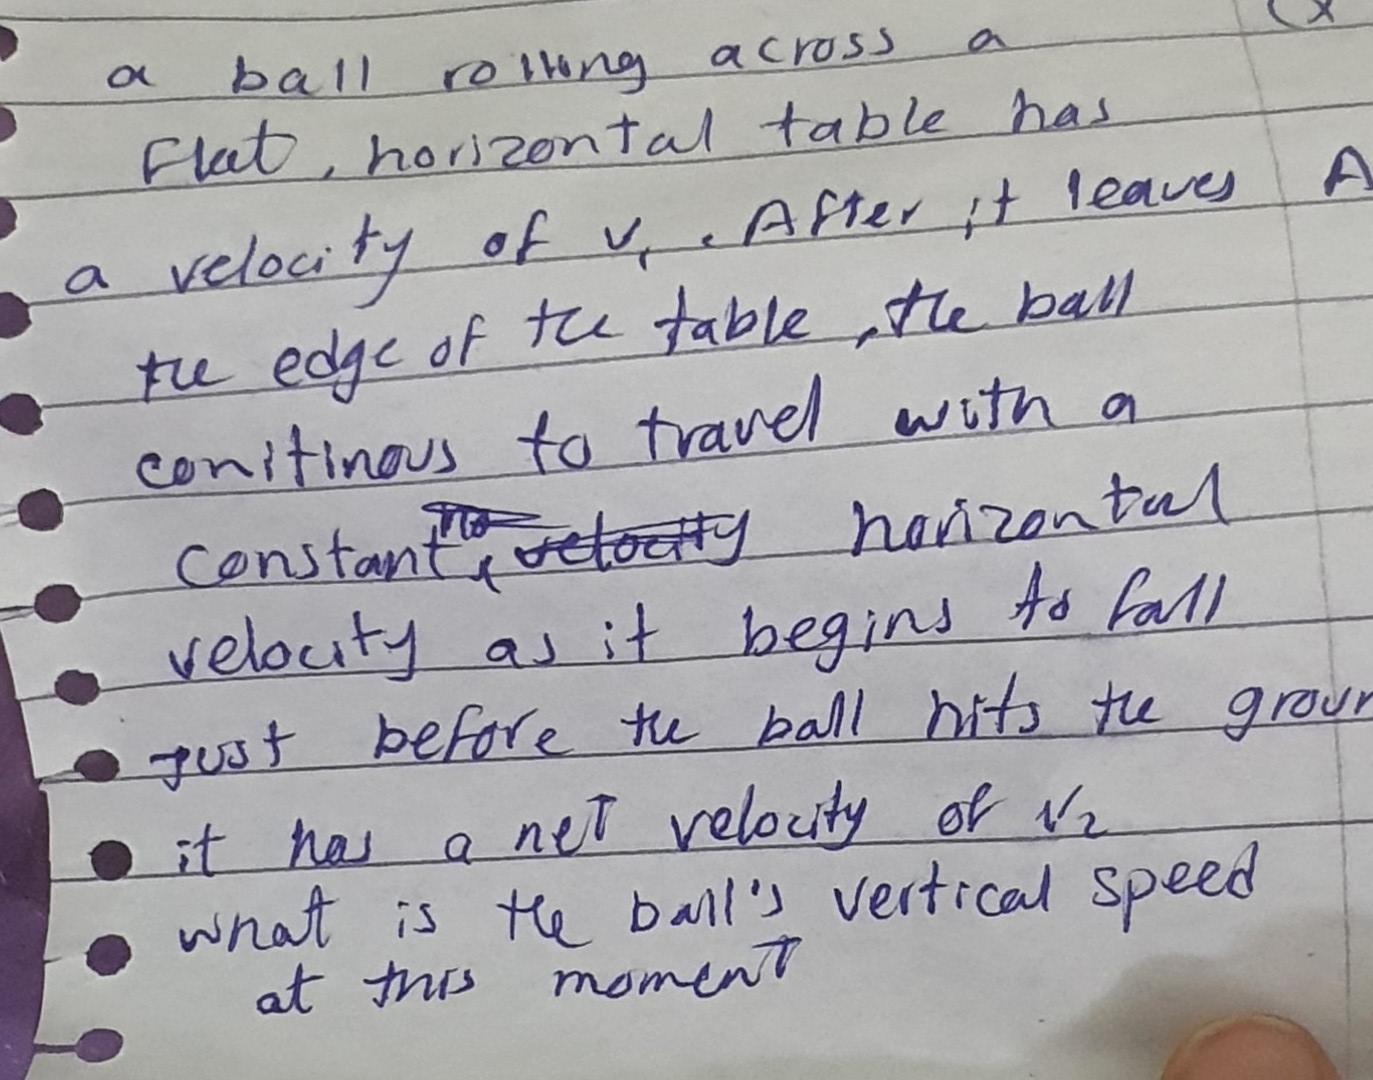 a ball rolling across a
Flat, horizontal table has
a velocity of v₁. After it leaves A
the edge of the table, the ball
conitinous to travel with a
constant horizontal
velocity as it begins to fall
Just before the ball hits the groun
it has a net velocity of V₂
what is the ball's vertical speed
at this moment